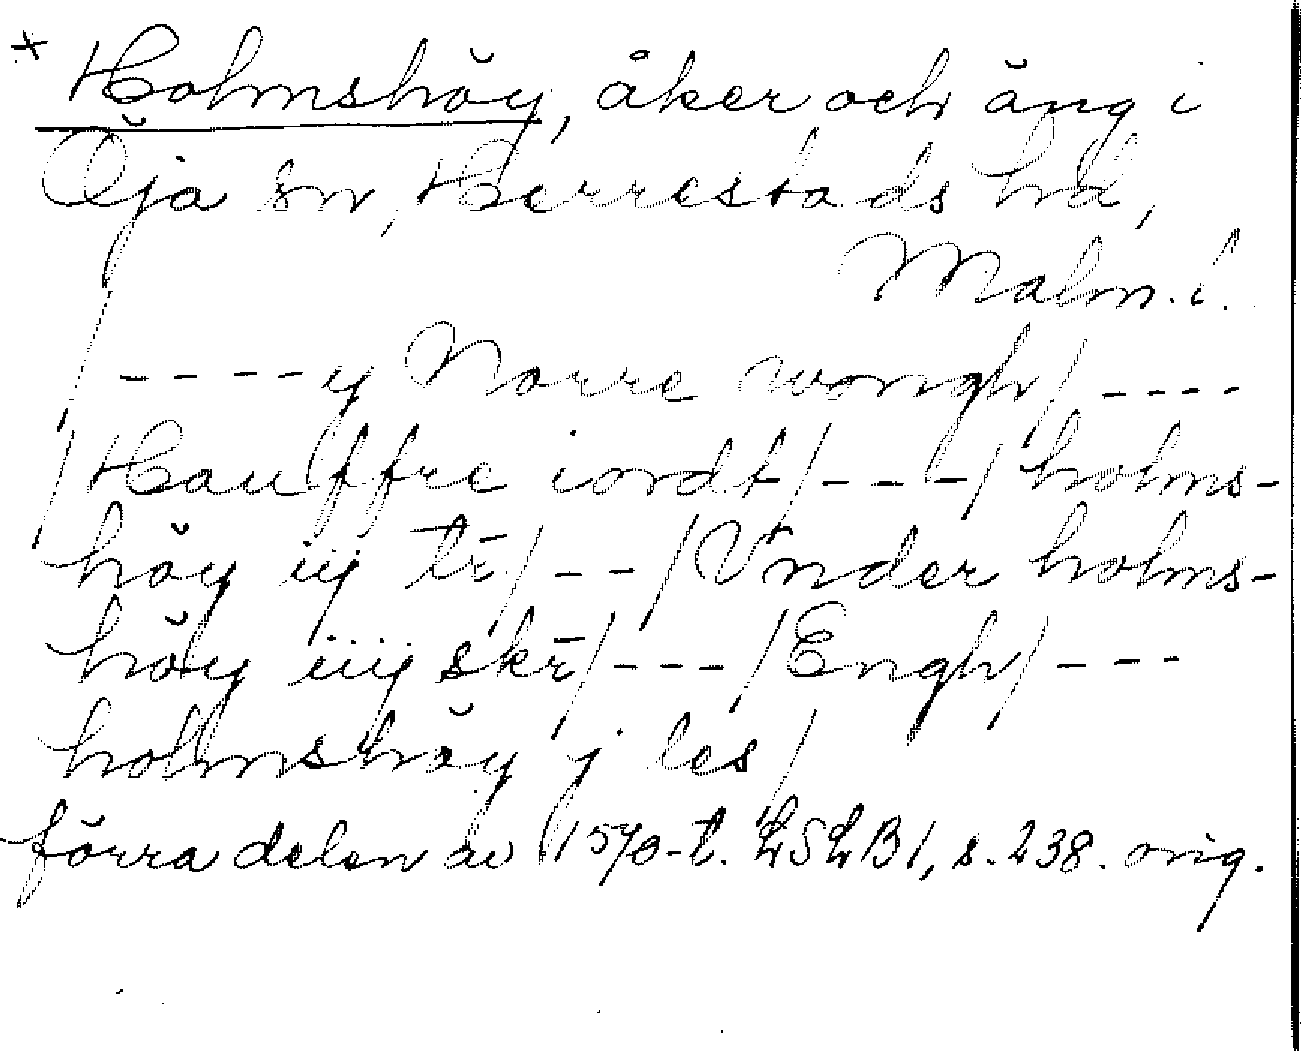 * Holmshöy, åker och äng i
Öja sn, Herrestads hd,
Malm. l.
/----y Norre wongh/----
/Hauffre iordt/---/holms-
höy iij tr̄/--/Vnder holms-
höy iiij skr̄/---/Engh/---
holmshöy j les/
förra delen av 1570-t. LSLB1, s. 238. orig.